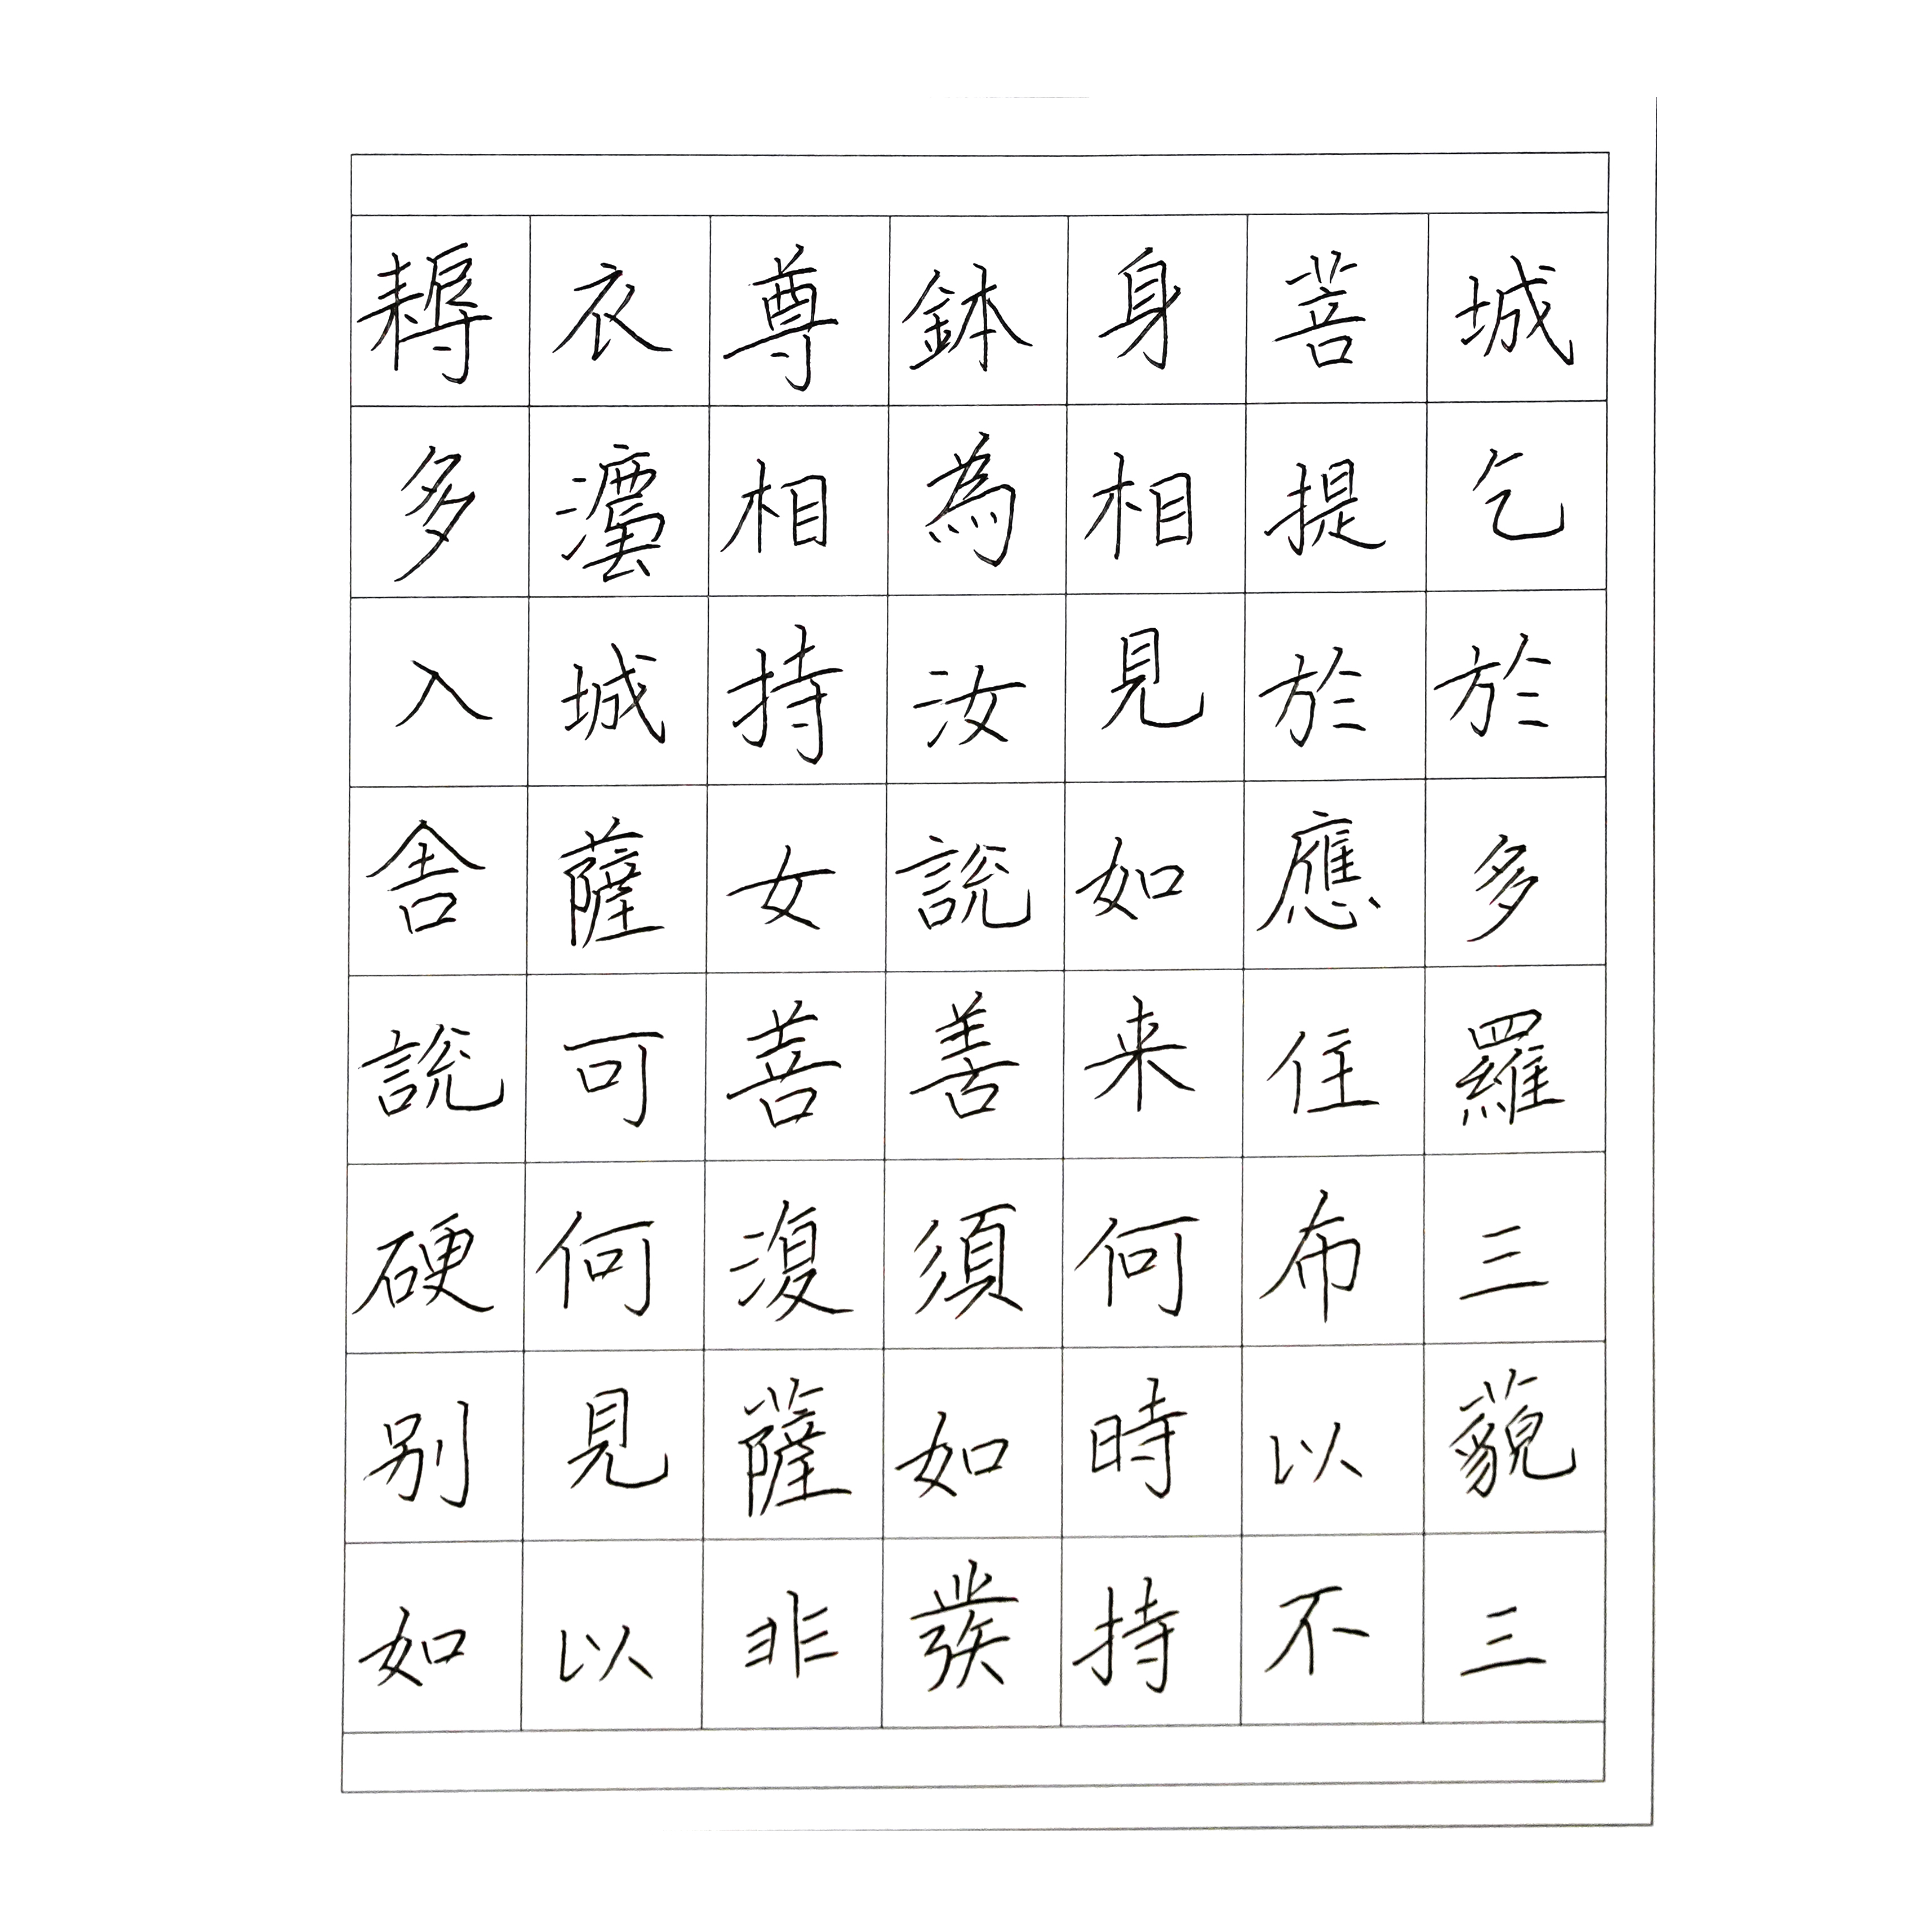 城乞於多羅三藐三
菩提於應住布以不
身相見如来何時持
鉢為汝說善須如發
尊相持女菩復薩非
衣城薩可何見以
耨多入舍說硬別如